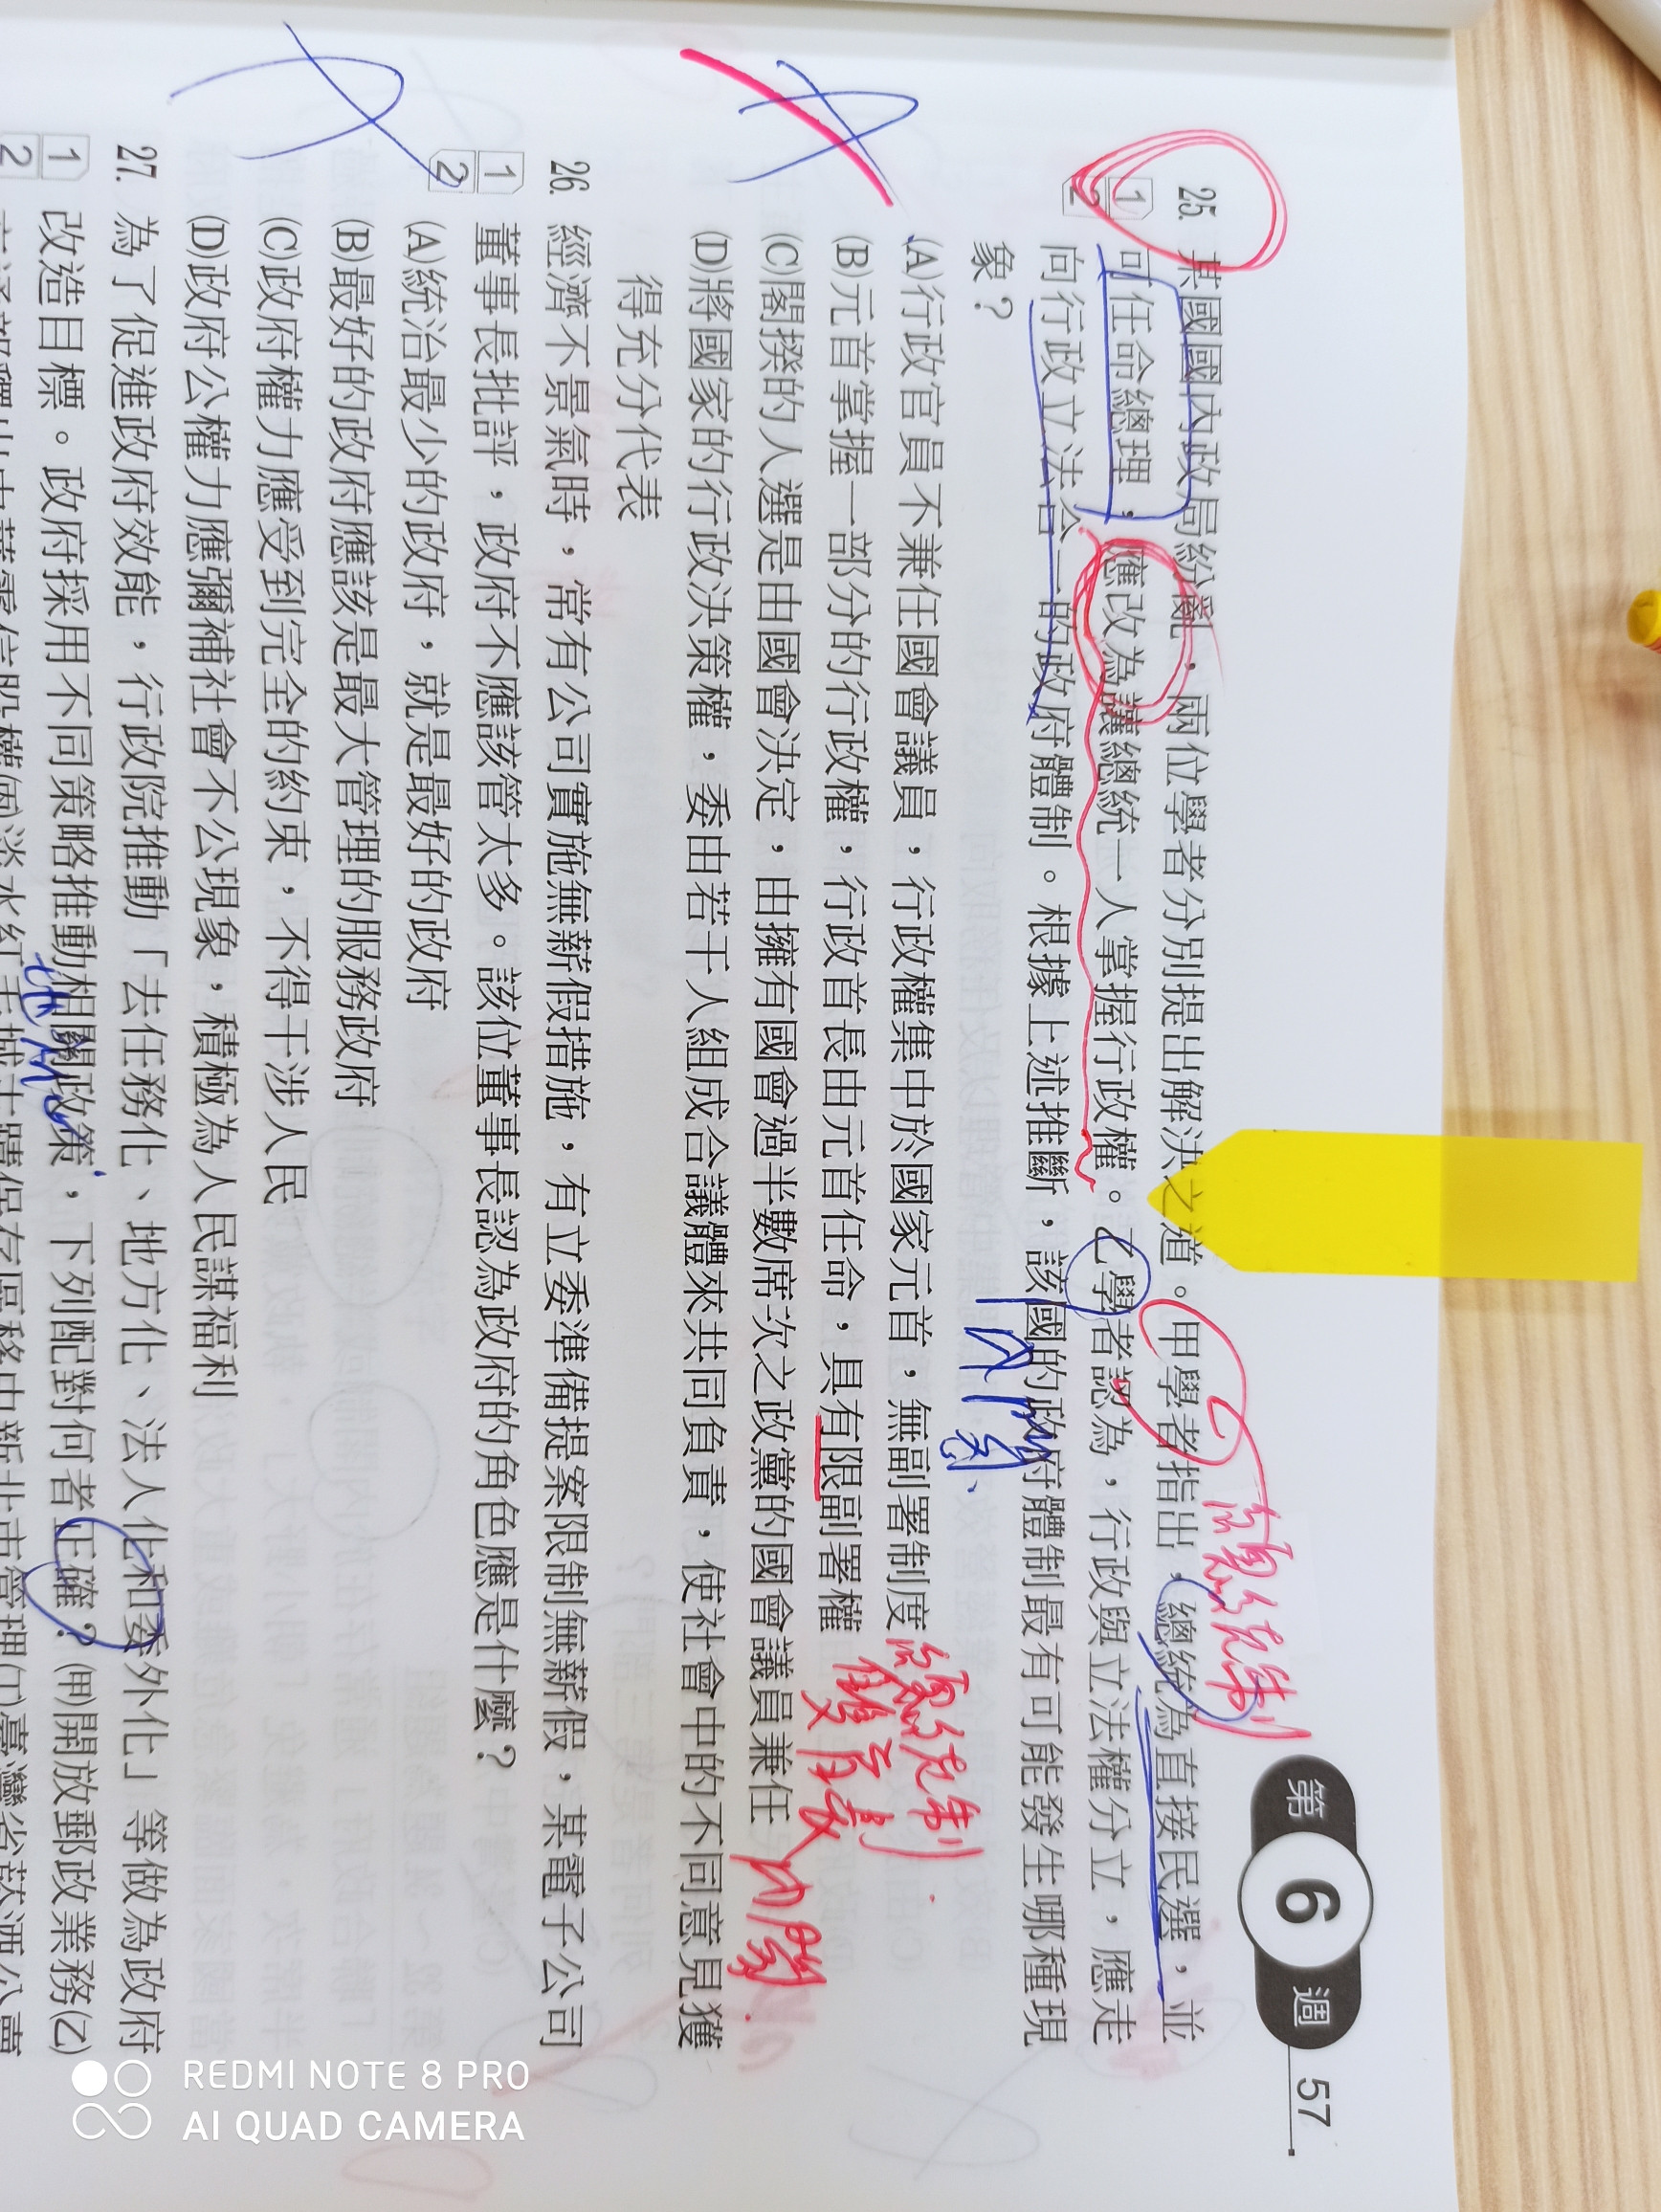 第6週 57
總統制
25. 某國國內政局紛亂,兩位學者分別提出解決之道。甲學者指出,總統為直接民選,並
1 可任命總理,應改為讓總統一人掌握行政權。乙學者認為,行政與立法權分立,應走
2 向行政立法合一的政府體制。根據上述推斷,該國的政府體制最有可能發生哪種現
象?
(A)行政官員不兼任國會議員,行政權集中於國家元首,無副署制度 總統制
(B)元首掌握一部分的行政權,行政首長由元首任命,具有限副署權 雙首長
(C)閣揆的人選是由國會決定,由擁有國會過半數席次之政黨的國會議員兼任 內閣
(D)將國家的行政決策權,委由若干人組成合議體來共同負責,使社會中的不同意見獲
得充分代表
26. 經濟不景氣時,常有公司實施無薪假措施,有立委準備提案限制無薪假,某電子公司
1 董事長批評,政府不應該管太多。該位董事長認為政府的角色應是什麼?
2 (A)統治最少的政府,就是最好的政府
(B)最好的政府應該是最大管理的服務政府
(C)政府權力應受到完全的約束,不得干涉人民
(D)政府公權力應彌補社會不公現象,積極為人民謀福利
27. 為了促進政府效能,行政院推動「去任務化、地方化、法人化和委外化」等做為政府
1 改造目標。政府採用不同策略推動相關政策,下列配對何者正確?(甲)開放郵政業務(乙)
2
REDMI NOTE 8 PRO
AI QUAD CAMERA